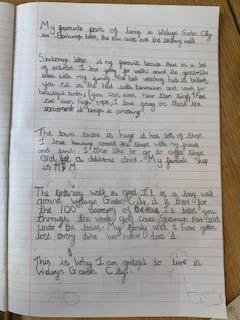 My favourite parts of living in Welwyn Garden City
are Stanborough lakes, the town centre and the centenary walk.
Stanborough lakes is my favourite because there is a lot
of activities. I love going for walks around the
lakes with my family. The bird watching hub is brilliant,
you sit in the hub with binoculars and look for
beautiful birds, you can even hear them sing! There
are even high ropes, I love going on them the
excitement it brings is amazing.
The town centre is huge it has lots of shops.
I love looking around the shops with my friends
and family. I also like to go to coffee shops
and get a delicious drink. My favourite shop
is H&M.
The centenary walk is great. It is a long walk
around Welwyn Garden City. It is there for
the 100th of the town. It takes you
through the woods, golf course, Stanborough park and
under the trees. My family and I have gotten
lost every time we have done it.
This is why I am grateful to live in
Welwyn Garden City.